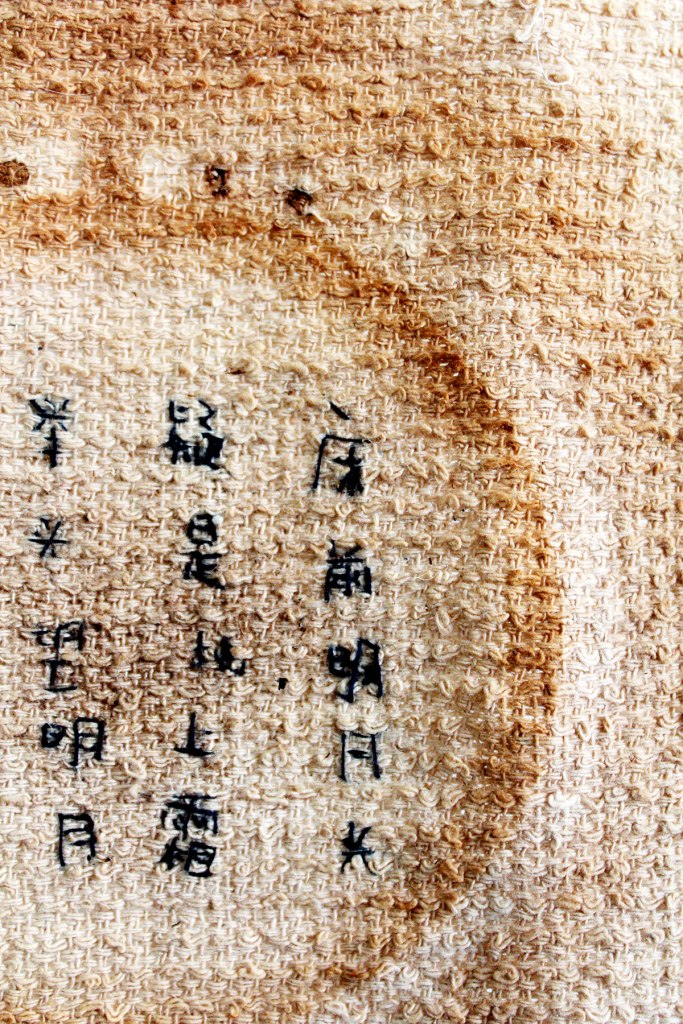 床前明月光
疑是地上霜
举头望明月